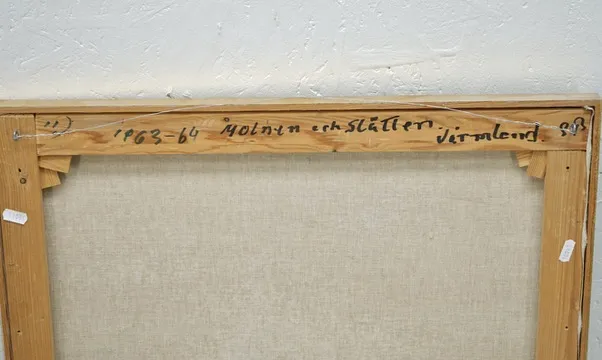 11) 1963-64 Molnen och Slätten Värmland.